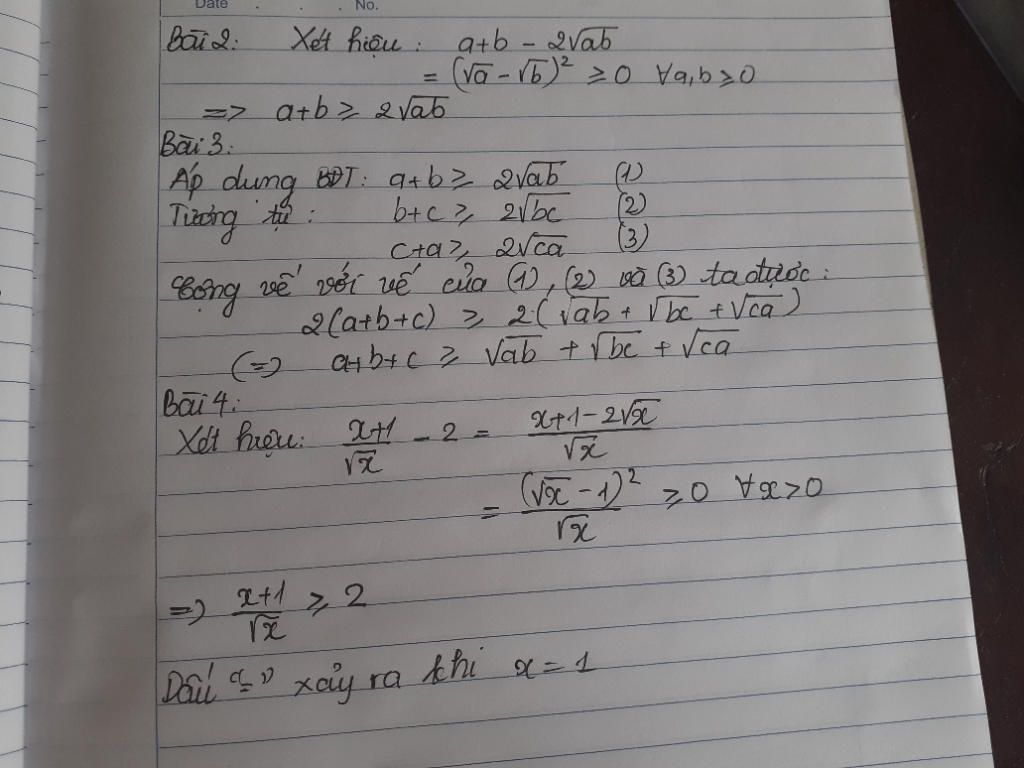 Date . . . No.
Bài 2: Xét hiệu: a+b - 2√ab
= (√a - √b)² ≥ 0 ∀a,b ≥ 0
=> a+b ≥ 2√ab
Bài 3:
Áp dụng BĐT: a+b ≥ 2√ab (1)
Tương tự: b+c ≥ 2√bc (2)
c+a ≥ 2√ca (3)
Cộng vế với vế của (1), (2) và (3) ta được:
2(a+b+c) ≥ 2(√ab + √bc + √ca)
(=) a+b+c ≥ √ab + √bc + √ca
Bài 4:
Xét hiệu: (x+1)/√x - 2 = (x+1-2√x)/√x
= (√x - 1)²/√x ≥ 0 ∀x>0
=> (x+1)/√x ≥ 2
Dấu "=" xảy ra khi x = 1